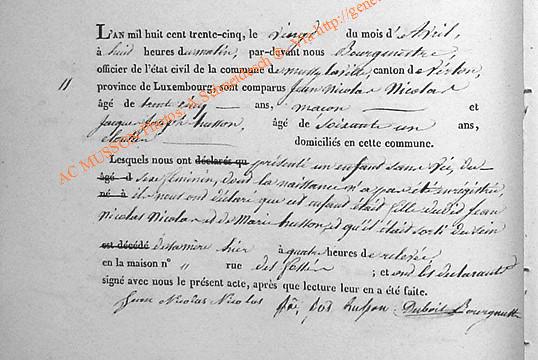 L'AN mil huit cent trente-cinq, le vingt du mois d'Avril,
à huit heures du matin, par-devant nous Bourgmestre,
officier de l'état civil de la commune de mussy la ville, canton de Virton,
11 province de Luxembourg, sont comparus Jean Nicolas Nicolas
âgé de trente ans, maçon et
Jacques Joseph husson, âgé de soixante un ans,
cloutier domiciliés en cette commune.
Lesquels nous ont déclaré qu présenté un enfant sans vie, du
âgé d sexe féminin, dont la naissance n'a pas été enregistrée,
né à ils nous ont déclaré que cet enfant était fille dudit Jean
Nicolas Nicolas et de Marie husson, et qu'il était sorti du sein
est décédé de sa mère hier à quatre heures de relevée,
en la maison n° 11 rue des fossés ; et ont les déclarants
signé avec nous le présent acte, après que lecture leur en a été faite.
Jean Nicolas Nicolas husson Dubois Bourgmestre
AC MUSSON Photos A. Schleich © Via http://gene